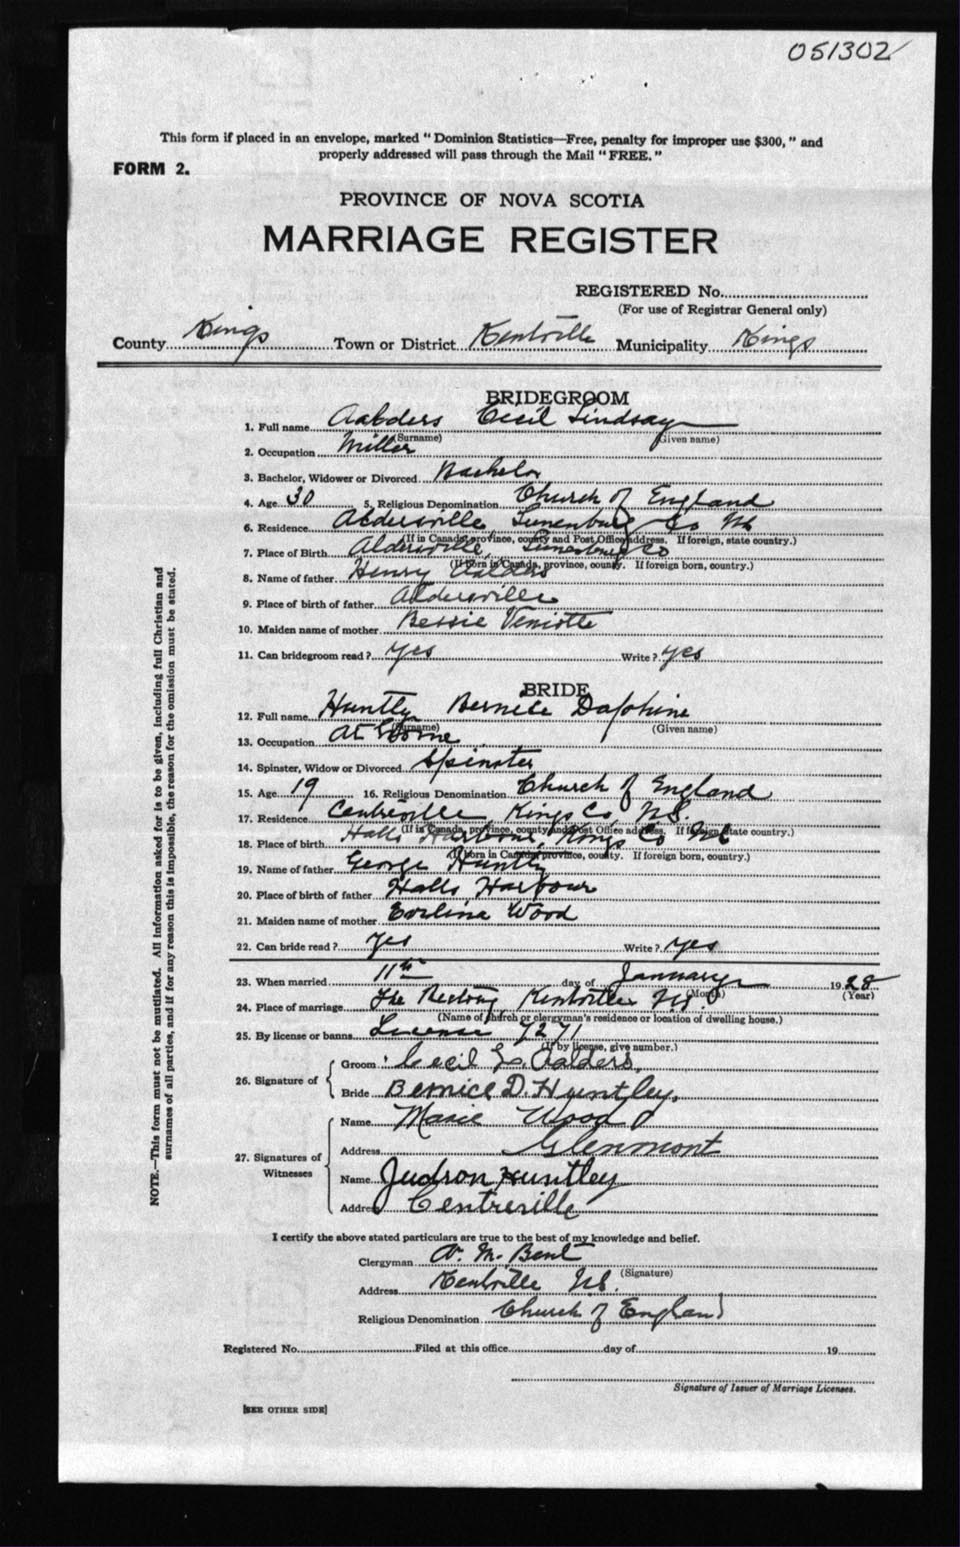 051302
This form if placed in an envelope, marked "Dominion Statistics—Free, penalty for improper use $300," and
properly addressed will pass through the Mail "FREE."
FORM 2.
PROVINCE OF NOVA SCOTIA
MARRIAGE REGISTER
REGISTERED No.
(For use of Registrar General only)
County Kings Town or District Kentville Municipality Kings
BRIDEGROOM
1. Full name Aalders Cecil Lindsay
(Surname) (Given name)
2. Occupation Miller
3. Bachelor, Widower or Divorced Bachelor
4. Age 30 5. Religious Denomination Church of England
6. Residence Aldersville Lunenburg Co NS
(If in Canada, province, county and Post Office address. If foreign, state country.)
7. Place of Birth Aldersville Lunenburg Co
(If born in Canada, province, county. If foreign born, country.)
8. Name of father Henry Aalders
9. Place of birth of father Aldersville
10. Maiden name of mother Bessie Veniotte
11. Can bridegroom read? Yes Write? Yes
BRIDE
12. Full name Huntly Bernice Daphine
(Surname) (Given name)
13. Occupation At Home
14. Spinster, Widow or Divorced Spinster
15. Age 19 16. Religious Denomination Church of England
17. Residence Centreville Kings Co NS.
(If in Canada, province, county and Post Office address. If foreign, state country.)
18. Place of birth Halls Harbour, Kings Co NS
(If born in Canada, province, county. If foreign born, country.)
19. Name of father George Huntly
20. Place of birth of father Halls Harbour
21. Maiden name of mother Wood
22. Can bride read? Yes Write? Yes
23. When married 11th day of January 1928
(Month) (Year)
24. Place of marriage The Rectory Kentville N.S.
(Name of church or clergyman's residence or location of dwelling house.)
25. By license or banns License 7271
(If by license, give number.)
26. Signature of
Groom Cecil L. Aalders.
Bride Bernice D. Huntley.
27. Signatures of
Witnesses
Name Marie Wood
Address Glenmont
Name Judson Huntley
Address Centreville
I certify the above stated particulars are true to the best of my knowledge and belief.
Clergyman A. M. Bent
(Signature)
Address Kentville N.S.
Religious Denomination Church of England
Registered No. Filed at this office day of 19
Signature of Issuer of Marriage Licenses.
[SEE OTHER SIDE]
NOTE.—This form must not be mutilated. All information asked for is to be given, including full Christian and
surnames of all parties, and if for any reason this is impossible, the reason for the omission must be stated.